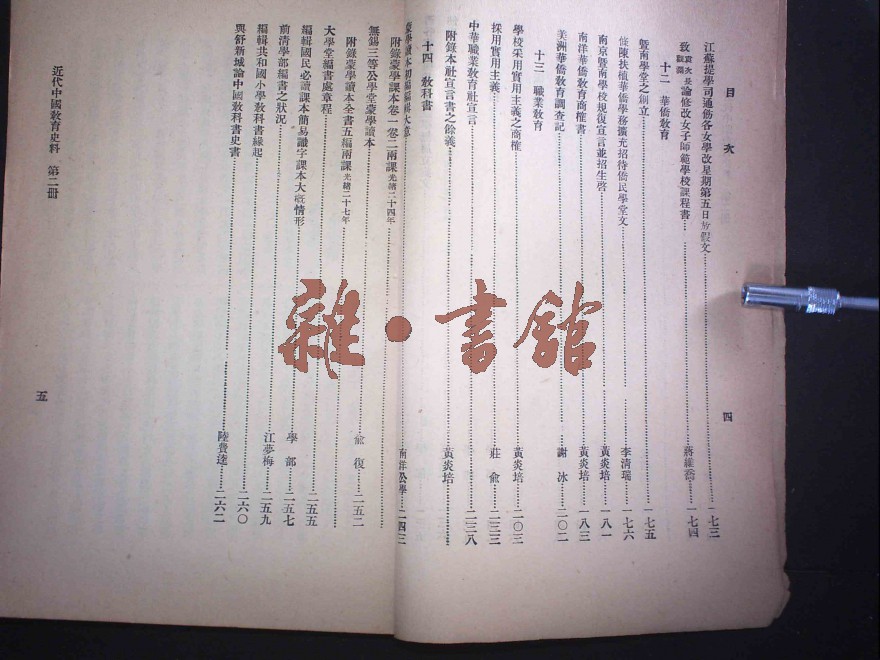 目次
四
江蘇提學司通飭各女學改星期第五日放假文……一七三
致黃太史訓鹽論修改女子師範學校課程書……蔣維喬……一七四
十二 華僑教育
暨南學堂之創立……一七五
條陳扶植華僑學務擴充招待僑民學堂文……李清瑞……一七六
南京暨南學校規復宣言並招生啓……黃炎培……一八一
南洋華僑教育商榷書……黃炎培……一八三
美洲華僑教育調查記……謝冰……二〇二
十三 職業教育
學校采用實用主義之商榷……黃炎培……二〇三
採用實用主義……莊俞……二三三
中華職業教育社宣言……二三八
附錄本社宣言書之餘義……黃炎培……
十四 教科書
蒙學讀本初編編輯大意……南洋公學……二四三
附錄蒙學課本卷一卷二兩課光緒二十四年……
無錫三等公學堂蒙學讀本……俞復……二五二
附錄蒙學讀本全書五編兩課光緒二十七年……
大學堂編書處章程……二五五
編輯國民必讀課本簡易識字課本大概情形……學部……二五七
前清學部編書之狀況……江夢梅……二五九
編輯共和國小學教科書緣起……二六〇
與舒新城論中國教科書史書……陸費逵……二六二
近代中國教育史料 第二冊
五
雜·書館